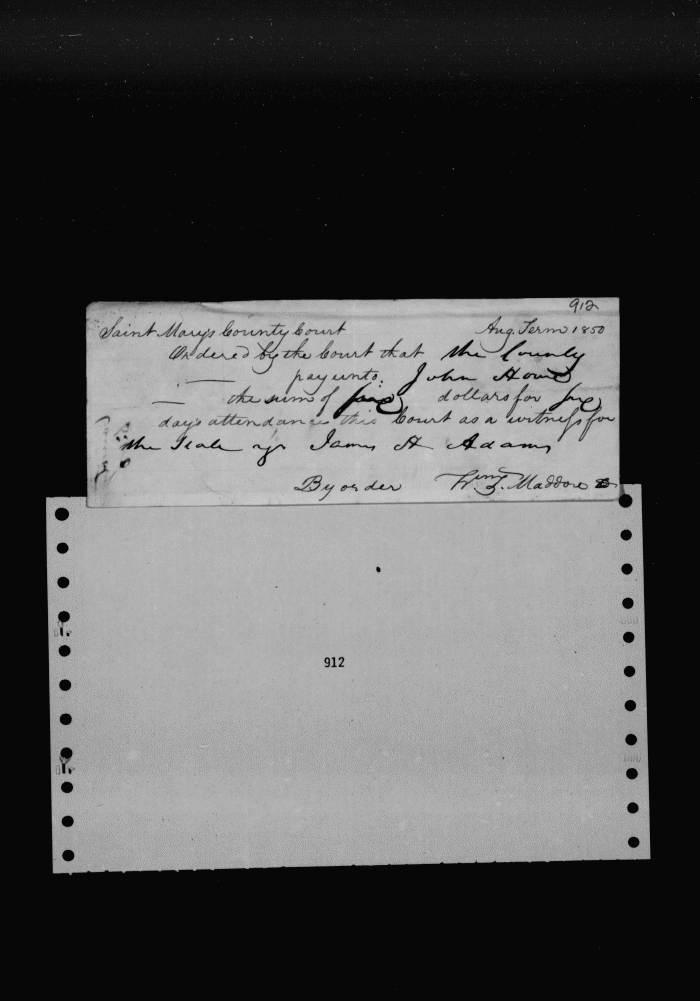 912
Saint Mary's County Court Aug. Term 1850
Ordered by the Court that the County
pay unto John
the sum of dollars for
days attendance this Court as a witness for
the State vs James H Adams
By order Wm T. Maddox
912